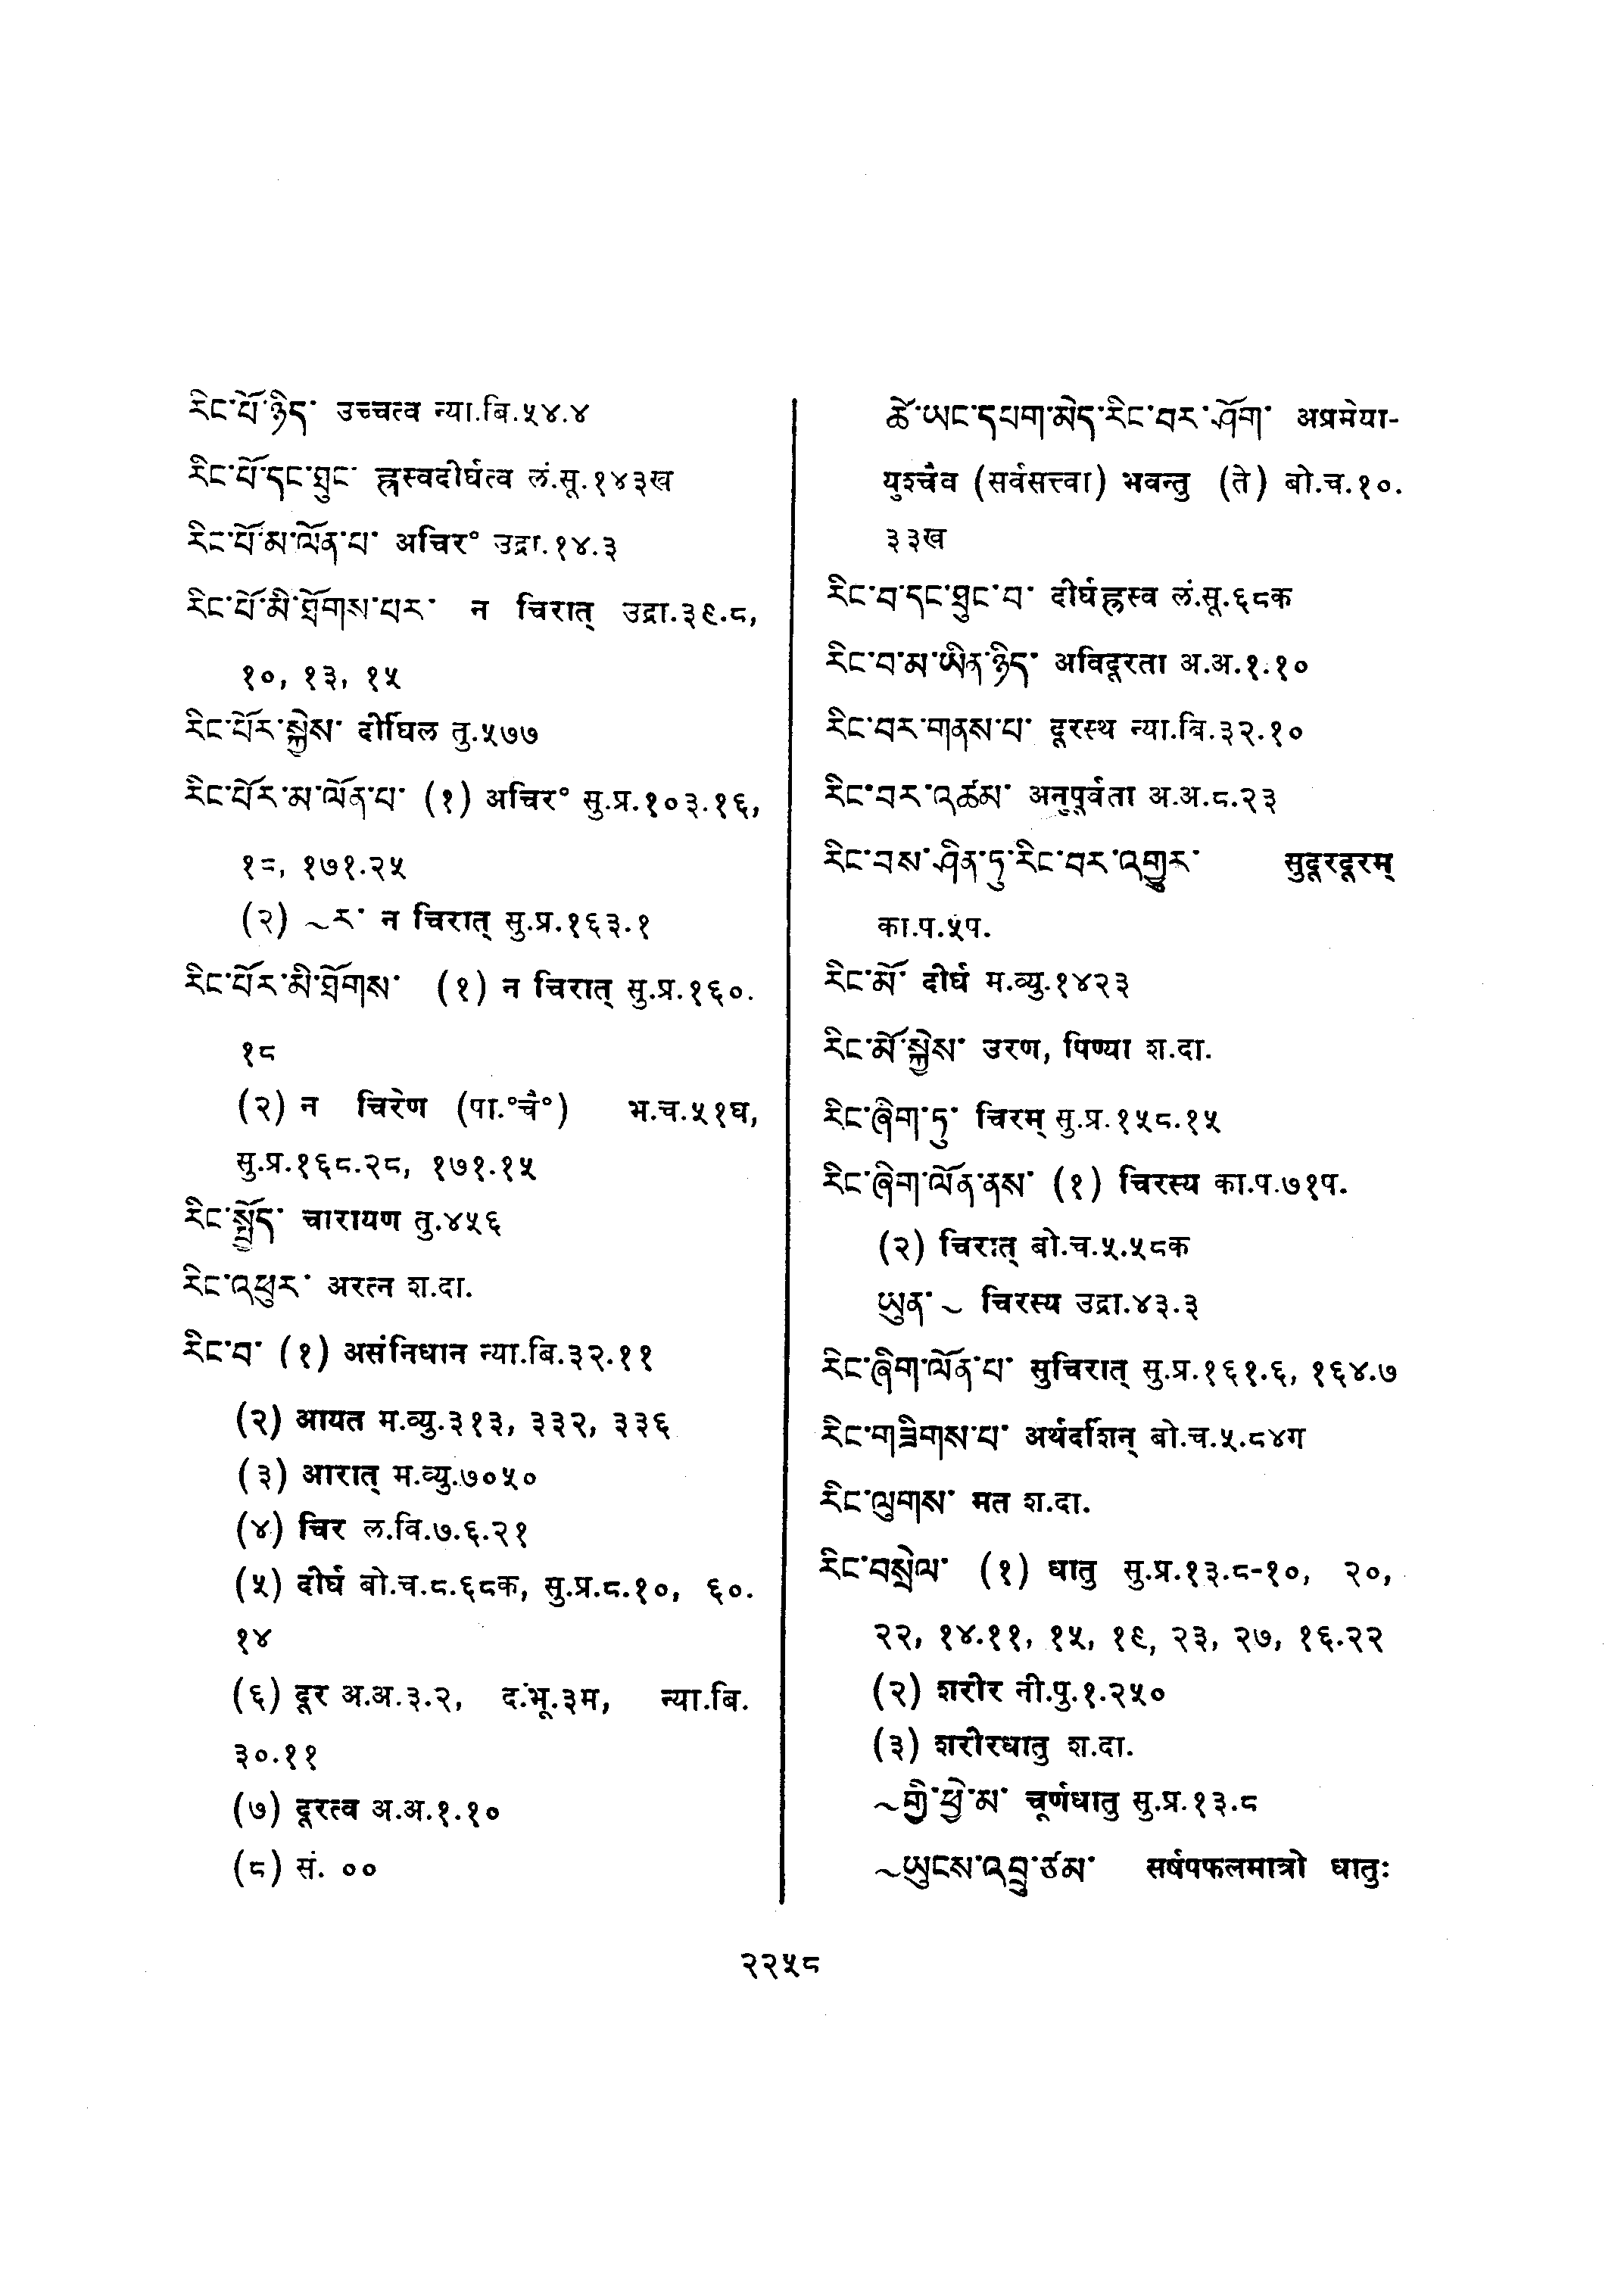 རིང་པོ་ཉིད་ उच्चत्व न्या.बि.५४.४
རིང་པོ་དང་ཐུང་ ह्रस्वदीर्घत्व लं.सू.१४३ख
རིང་པོ་མ་ལོན་པ་ अचिर° उद्रा.१४.३
རིང་པོ་མི་ཐོགས་པར་ न चिरात् उद्रा.३९.८,
१०, १३, १५
རིང་པོར་སྐྱེས་ दीर्घिल तु.५७७
རིང་པོར་མ་ལོན་པ་ (१) अचिर° सु.प्र.१०३.१६,
१८, १७१.२५
(२) ~ར་ न चिरात् सु.प्र.१६३.१
རིང་པོར་མི་ཐོགས་ (१) न चिरात् सु.प्र.१६०.
१८
(२) न चिरेण (पा.°चै°) भ.च.५१घ,
सु.प्र.१६८.२८, १७१.१५
རིང་སྤྱོད་ चारायण तु.४५६
རིང་འཕུར་ अरत्न श.दा.
རིང་བ་ (१) असंनिधान न्या.बि.३२.११
(२) आयत म.व्यु.३१३, ३३२, ३३६
(३) आरात् म.व्यु.७०५०
(४) चिर ल.वि.७.६.२१
(५) दीर्घ बो.च.८.६८क, सु.प्र.८.१०, ६०.
१४
(६) दूर अ.अ.३.२, द.भू.३म, न्या.बि.
३०.११
(७) दूरत्व अ.अ.१.१०
(८) सं. ००
ཚེ་ཡང་དཔག་མེད་རིང་བར་ཤོག་ अप्रमेया-
युश्चैव (सर्वसत्त्वा) भवन्तु (ते) बो.च.१०.
३३ख
རིང་བ་དང་ཐུང་བ་ दीर्घह्रस्व लं.सू.६८क
རིང་བ་མ་ཡིན་ཉིད་ अविदूरता अ.अ.१.१०
རིང་བར་གནས་པ་ दूरस्थ न्या.बि.३२.१०
རིང་བར་འཚམ་ अनुपूर्वता अ.अ.८.२३
རིང་བས་ཤིན་ཏུ་རིང་བར་འགྱུར་ सुदूरदूरम्
का.प.५प.
རིང་མོ་ दीर्घ म.व्यु.१४२३
རིང་མོ་སྐྱེས་ उरण, पिण्या श.दा.
རིང་ཞིག་ཏུ་ चिरम् सु.प्र.१५८.१५
རིང་ཞིག་ལོན་ནས་ (१) चिरस्य का.प.७१प.
(२) चिरात् बो.च.५.५८क
ཡུན་~ चिरस्य उद्रा.४३.३
རིང་ཞིག་ལོན་པ་ सुचिरात् सु.प्र.१६१.६, १६४.७
རིང་གཟིགས་པ་ अर्थदर्शिन् बो.च.५.८४ग
རིང་ལུགས་ मत श.दा.
རིང་བསྲེལ་ (१) धातु सु.प्र.१३.८-१०, २०,
२२, १४.११, १५, १९, २३, २७, १६.२२
(२) शरीर नी.पु.१.२५०
(३) शरीरधातु श.दा.
~གྱི་ཕྱེ་མ་ चूर्णधातु सु.प्र.१३.८
~ཡུངས་འབྲུ་ཙམ་ सर्षपफलमात्रो धातुः
२२५८